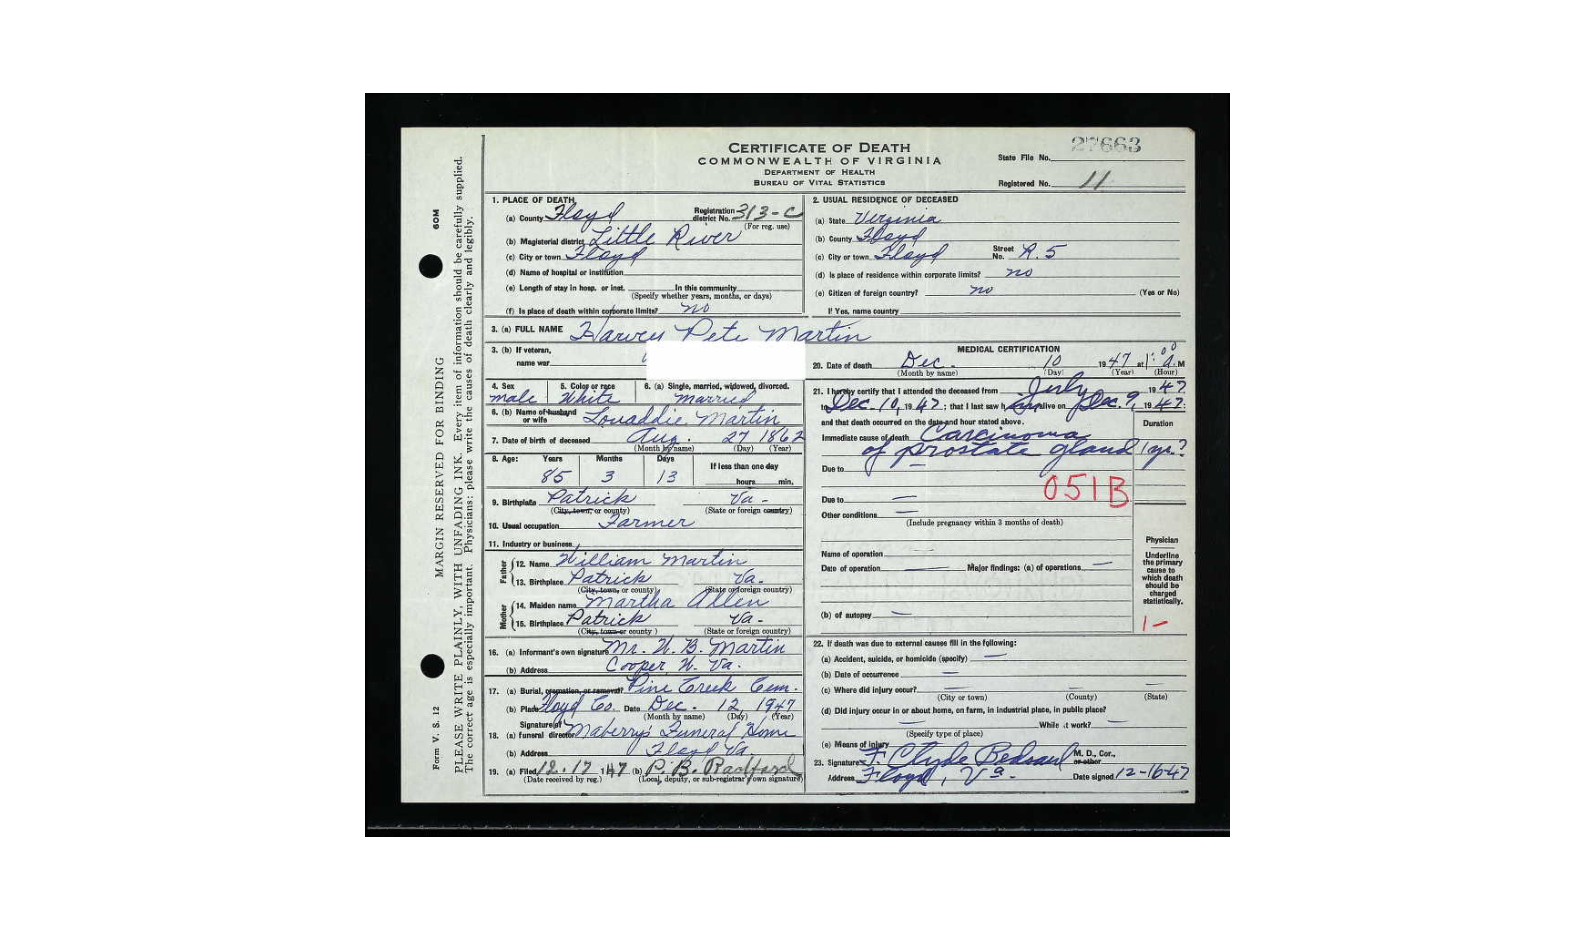 CERTIFICATE OF DEATH
COMMONWEALTH OF VIRGINIA
DEPARTMENT OF HEALTH
BUREAU OF VITAL STATISTICS
State File No. 27663
Registered No. 11
Form V. S. 12 60M
MARGIN RESERVED FOR BINDING
PLEASE WRITE PLAINLY, WITH UNFADING INK. Every item of information should be carefully supplied.
The correct age is especially important. Physicians: please write the causes of death clearly and legibly.
1. PLACE OF DEATH
(a) County Floyd Registration district No. 313-C
(For reg. use)
(b) Magisterial district Little River
(c) City or town Floyd
(d) Name of hospital or institution
(e) Length of stay in hosp. or inst. In this community
(Specify whether years, months, or days)
(f) Is place of death within corporate limits? no
2. USUAL RESIDENCE OF DECEASED
(a) State Virginia
(b) County Floyd
(c) City or town Floyd Street No. R.5
(d) Is place of residence within corporate limits? no
(e) Citizen of foreign country? no (Yes or No)
If Yes, name country
3. (a) FULL NAME Harvey Pete Martin
3. (b) If veteran,
name war
4. Sex male 5. Color or race White 6. (a) Single, married, widowed, divorced. married
6. (b) Name of husband or wife Louaddie Martin
7. Date of birth of deceased Aug. 27 1862
(Month by name) (Day) (Year)
8. Age: Years Months Days If less than one day
85 3 13 hours min.
9. Birthplace Patrick Va -
(City, town, or county) (State or foreign country)
10. Usual occupation Farmer
11. Industry or business
Father
12. Name William Martin
13. Birthplace Patrick Va.
(City, town, or county) (State or foreign country)
Mother
14. Maiden name Martha Allen
15. Birthplace Patrick Va -
(City, town or county) (State or foreign country)
16. (a) Informant's own signature Mr. W. B. Martin
(b) Address Cooper W. Va.
17. (a) Burial, cremation, or removal? Pine Creek Cem.
(b) Place Floyd Co. Date Dec. 12, 1947
(Month by name) (Day) (Year)
18. (a) Signature of funeral director Maberry's Funeral Home
(b) Address Floyd Va.
19. (a) Filed 12-17 1947 (b) P. B. Radford
(Date received by reg.) (Local, deputy, or sub-registrar's own signature)
MEDICAL CERTIFICATION
20. Date of death Dec. 10 1947 at 1:00 a M
(Month by name) (Day) (Year) (Hour)
21. I hereby certify that I attended the deceased from July 1947
to Dec. 10, 1947; that I last saw him alive on Dec. 9, 1947;
and that death occurred on the date and hour stated above. Duration
Immediate cause of death Carcinoma
of prostate gland 1 yr.?
Due to
Due to —
051B
Other conditions —
(Include pregnancy within 3 months of death)
Name of operation —
Date of operation — Major findings: (a) of operations —
(b) of autopsy —
Physician
Underline the primary cause to which death should be charged statistically.
1 -
22. If death was due to external causes fill in the following:
(a) Accident, suicide, or homicide (specify) —
(b) Date of occurrence —
(c) Where did injury occur? — — —
(City or town) (County) (State)
(d) Did injury occur in or about home, on farm, in industrial place, in public place?
— While at work? —
(Specify type of place)
(e) Means of injury
23. Signature F. Clyde Bedsaul M. D., Cor., or other
Address Floyd, Va. Date signed 12-16-47